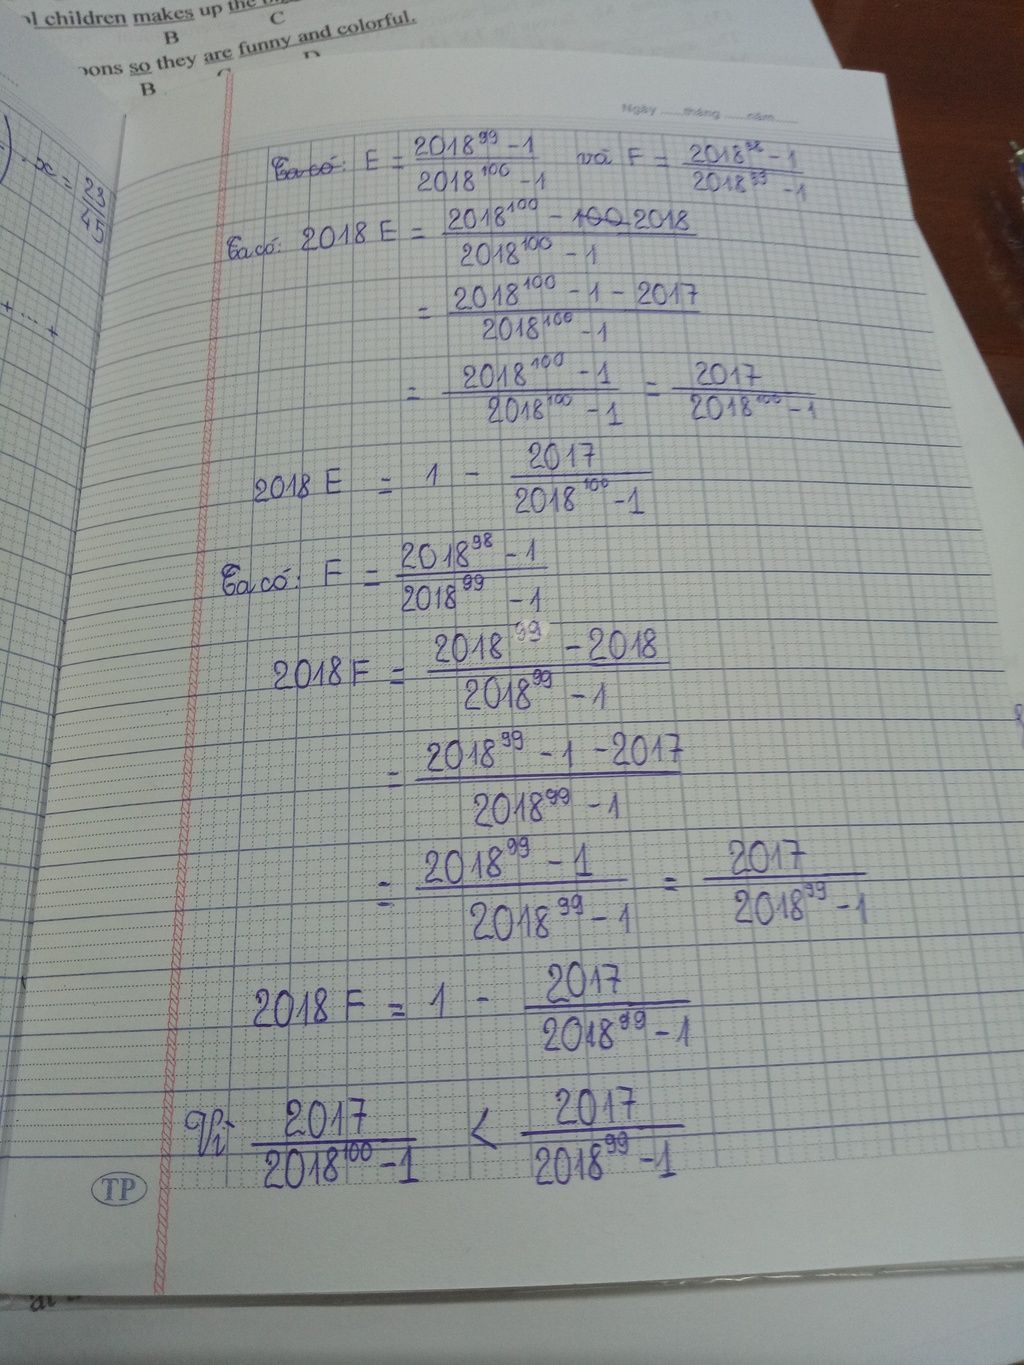 ol children makes up the
B C
oons so they are funny and colorful.
B C D
Ngày ......tháng ......năm......
x = 23/45
+ ... +
Ta có: E = (2018^99 - 1)/(2018^100 - 1) và F = (2018^98 - 1)/(2018^99 - 1)
Ta có: 2018 E = (2018^100 - 100 2018)/(2018^100 - 1)
= (2018^100 - 1 - 2017)/(2018^100 - 1)
= (2018^100 - 1)/(2018^100 - 1) = 2017/(2018^100 - 1)
2018 E = 1 - 2017/(2018^100 - 1)
Ta có: F = (2018^98 - 1)/(2018^99 - 1)
2018 F = (2018^99 - 2018)/(2018^99 - 1)
= (2018^99 - 1 - 2017)/(2018^99 - 1)
= (2018^99 - 1)/(2018^99 - 1) = 2017/(2018^99 - 1)
2018 F = 1 - 2017/(2018^99 - 1)
Vì 2017/(2018^100 - 1) < 2017/(2018^99 - 1)
TP